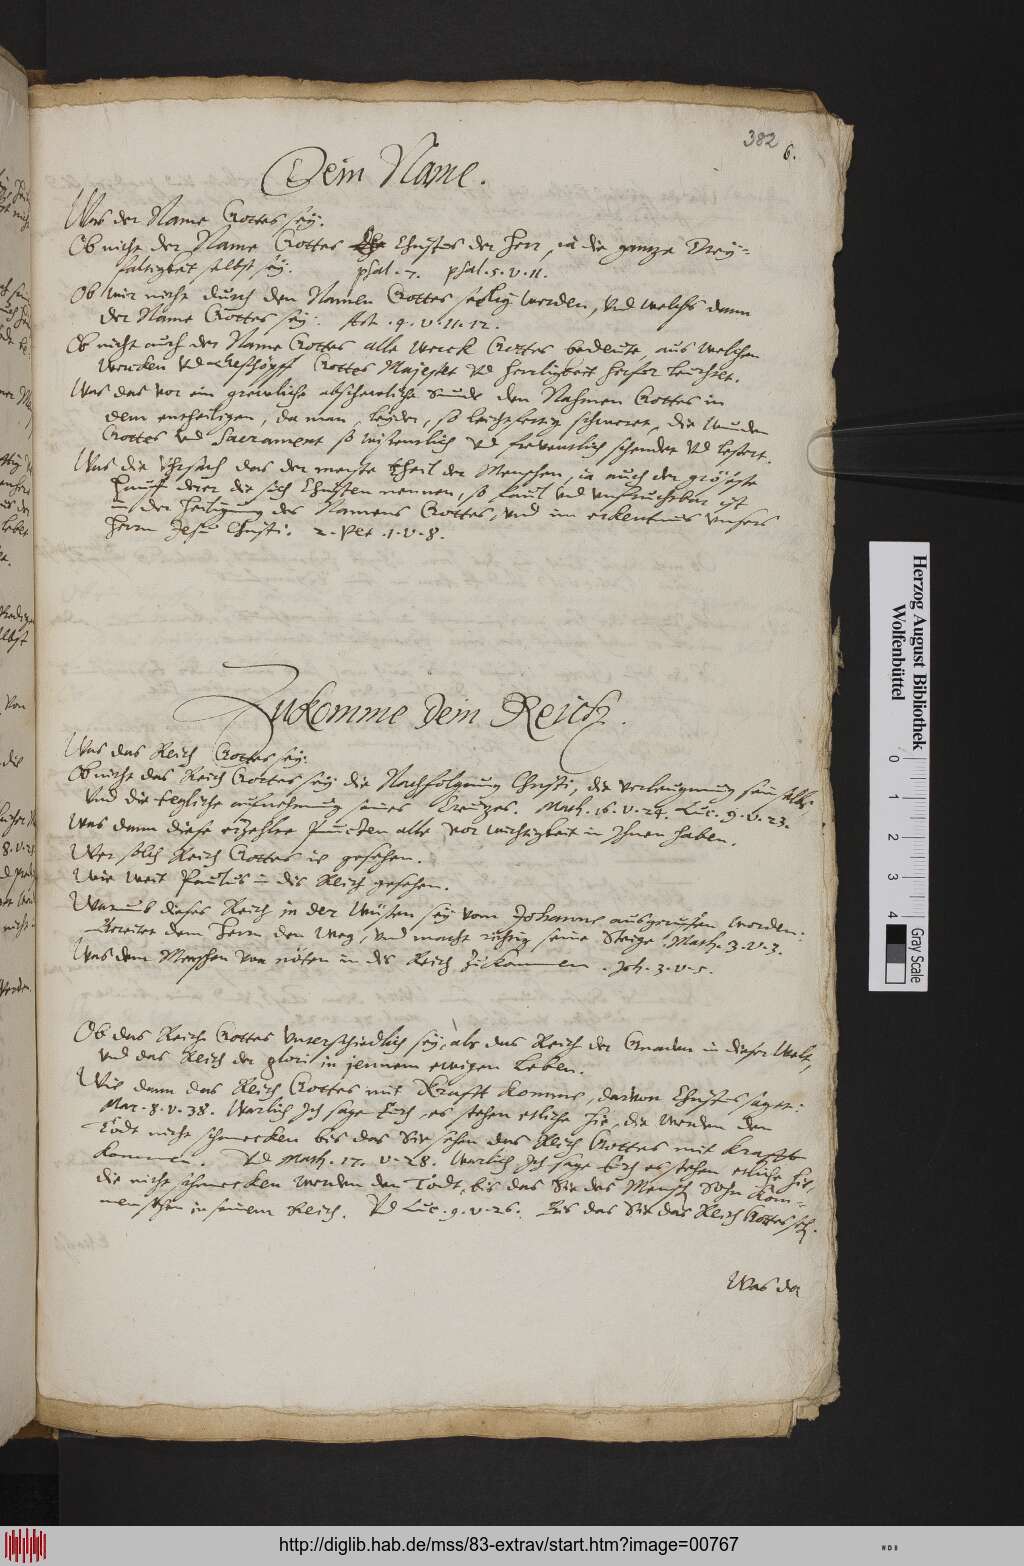 382
6.
Dein Name.
Was der Name Gottes sey.
Ob nicht der Name Gottes Christus der Herr, ja die gantze Drey=
faltigkeit selbst sey. psal. 7. psal. 5. v. 11.
Ob wir nicht durch den Namen Gottes selig werden, vnd welchs dann
der Name Gottes sey. Act. 4. v. 11. 12.
Ob nicht auch der Name Gottes alle werck Gottes bedeute, aus welchen
wercken vnd Geschöpff Gottes Majestet vnd herrligkeit herfor leuchtet.
Was das vor ein grewliche abschewliche Sünde den Nahmen Gottes in
dem entheiligen, da man, leyder, so leichtfertig schweret, die Wunden
Gottes vnd Sacrament so wissentlich vnd freventlich schendet vnd lestert.
Was die Vhrsach das der meiste theil der Menschen, ja auch der gröste
hauff derer die sich Christen nennen, so faul vnd vnfruchtbar ist
in der Heiligung des Namens Gottes, vnd im erkentnus vnsers
Herrn Jesu Christi. 2. Pet. 1. v. 8.
Zukomme dein Reich.
Was das Reich Gottes sey.
Ob nicht das Reich Gottes sey die Nachfolgung Christi, die verleugnung sein selbs
vnd die tegliche aufnehmung seines Creutzes. Math. 16. v. 24. Luc. 9. v. 23.
Was dann diese erzehlte puncten alle vor wichtigkeit in Ihnen haben.
Wer solch Reich Gottes ie gesehen.
Wie weit Paulus in dis Reich gesehen.
Warumb dieses Reich in der Wüsten sey vom Johanne ausgeruffen worden:
Bereitet dem Herrn den Weg, vnd macht richtig seine Steige. Math. 3. v. 3.
Was dem Menschen von nöten in dis Reich zukommen. Joh. 3. v. 5.
Ob das Reich Gottes vnterschiedlich sey, als das Reich der Gnaden in dieser Welt,
vnd das Reich der glori in jennem ewigen Leben.
Wie dann das Reich Gottes mit Krafft komme, darvon Christus saget:
Mar. 8. v. 38. Warlich Ich sage Euch, es stehen etliche hie, die werden den
Todt nicht schmecken bis das Sie sehen das Reich Gottes mit Krafft
kommen. Vnd Math. 17. v. 28. Warlich Ich sage Euch es stehen etliche hie,
die nicht schmecken werden den Todt, bis das Sie des Menschen Sohn kom=
men sehen in seinem Reich. Vnd Luc. 9. v. 26. Bis das Sie das Reich Gottes seh.
Was der
Herzog August Bibliothek
Wolfenbüttel
0 1 2 3 4
Gray Scale
http://diglib.hab.de/mss/83-extrav/start.htm?image=00767